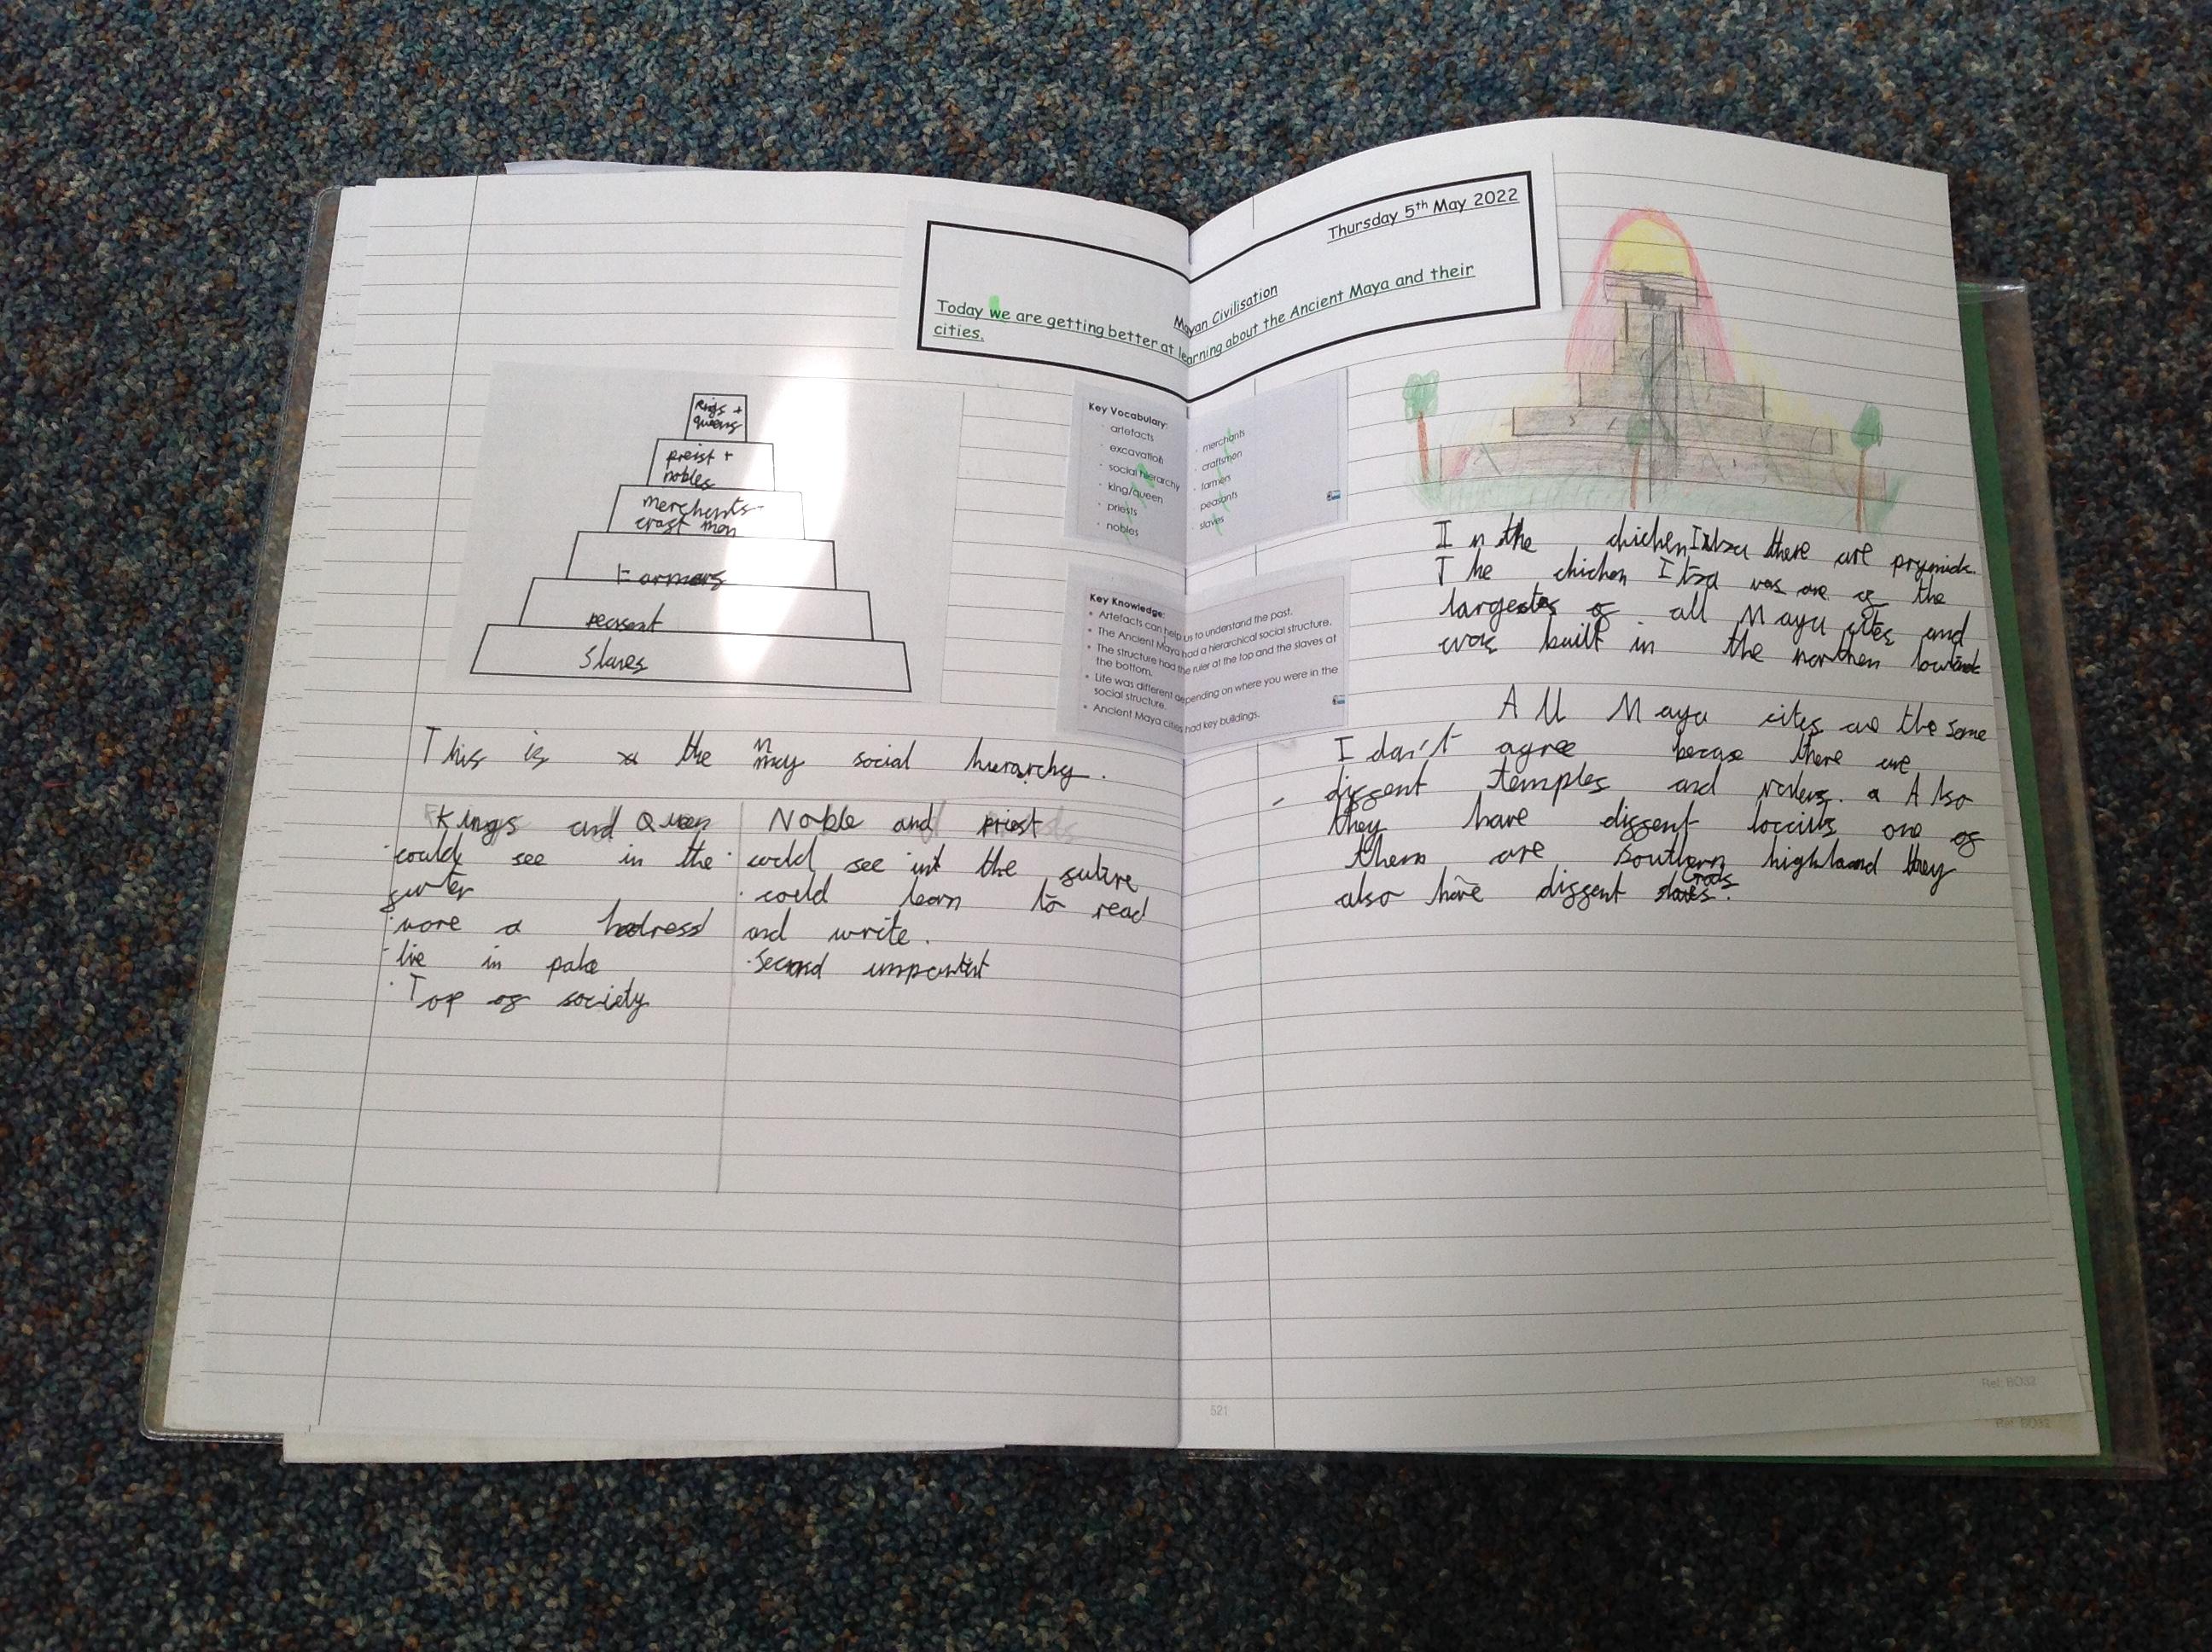 Thursday 5th May 2022
Mayan Civilisation
Today we are getting better at learning about the Ancient Maya and their
cities.
Kings +
queens
preist +
nobles
merchants
crast men
Farmars
peasent
Slaves
Key Vocabulary:
artefacts
excavation
social hierarchy
king/queen
priests
nobles
merchants
craftsmen
farmers
peasants
slaves
Key Knowledge:
Artefacts can help us to understand the past.
The Ancient Maya had a hierarchical social structure.
The structure had the ruler at the top and the slaves at
the bottom.
Life was different depending on where you were in the
social structure.
Ancient Maya cities had key buildings.
This is the may social hierarchy.
Kings and Queen
could see in the
surter
wore a hedress
live in palce
Top os society
Noble and priest
could see int the suture
could learn to read
and write.
Second importint
In the chichen Itza there are prymids.
The chichen Itza was one os the
largest os all Maya cites and
was built in the northen
All Maya cites are the same
I don't agree becase there are
dissent temples and rulers. Also
they have dissent one os
them are southern highland they
also have dissent Gods.
521
Ref: BD32
Ref: BD32